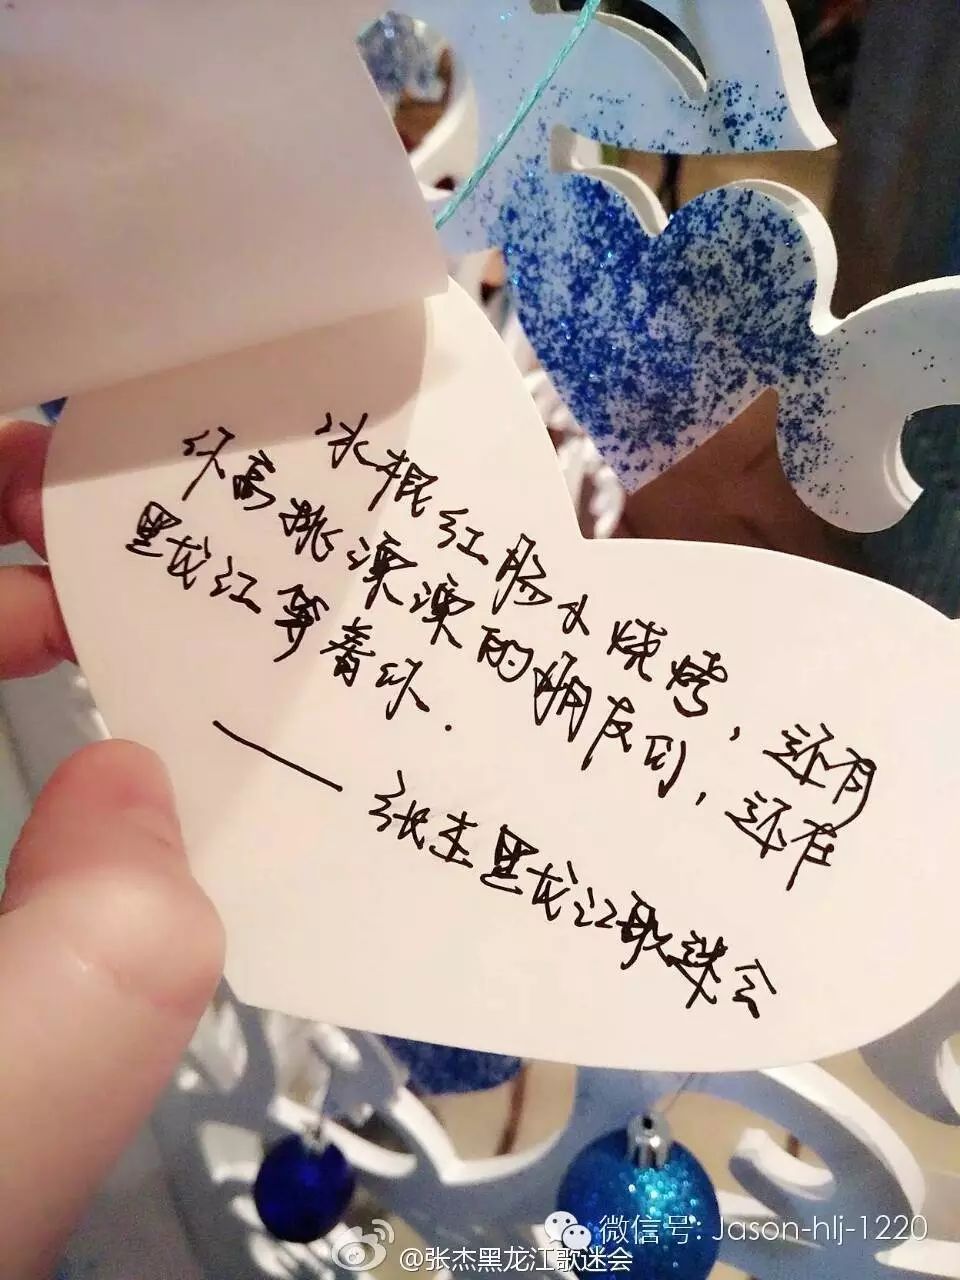 冰棍红肠大烧烤，还有
你高挑漂漂的朋友们，还有
黑龙江等着你.
——张杰黑龙江歌迷会
微信号: Jason-hlj-1220
@张杰黑龙江歌迷会